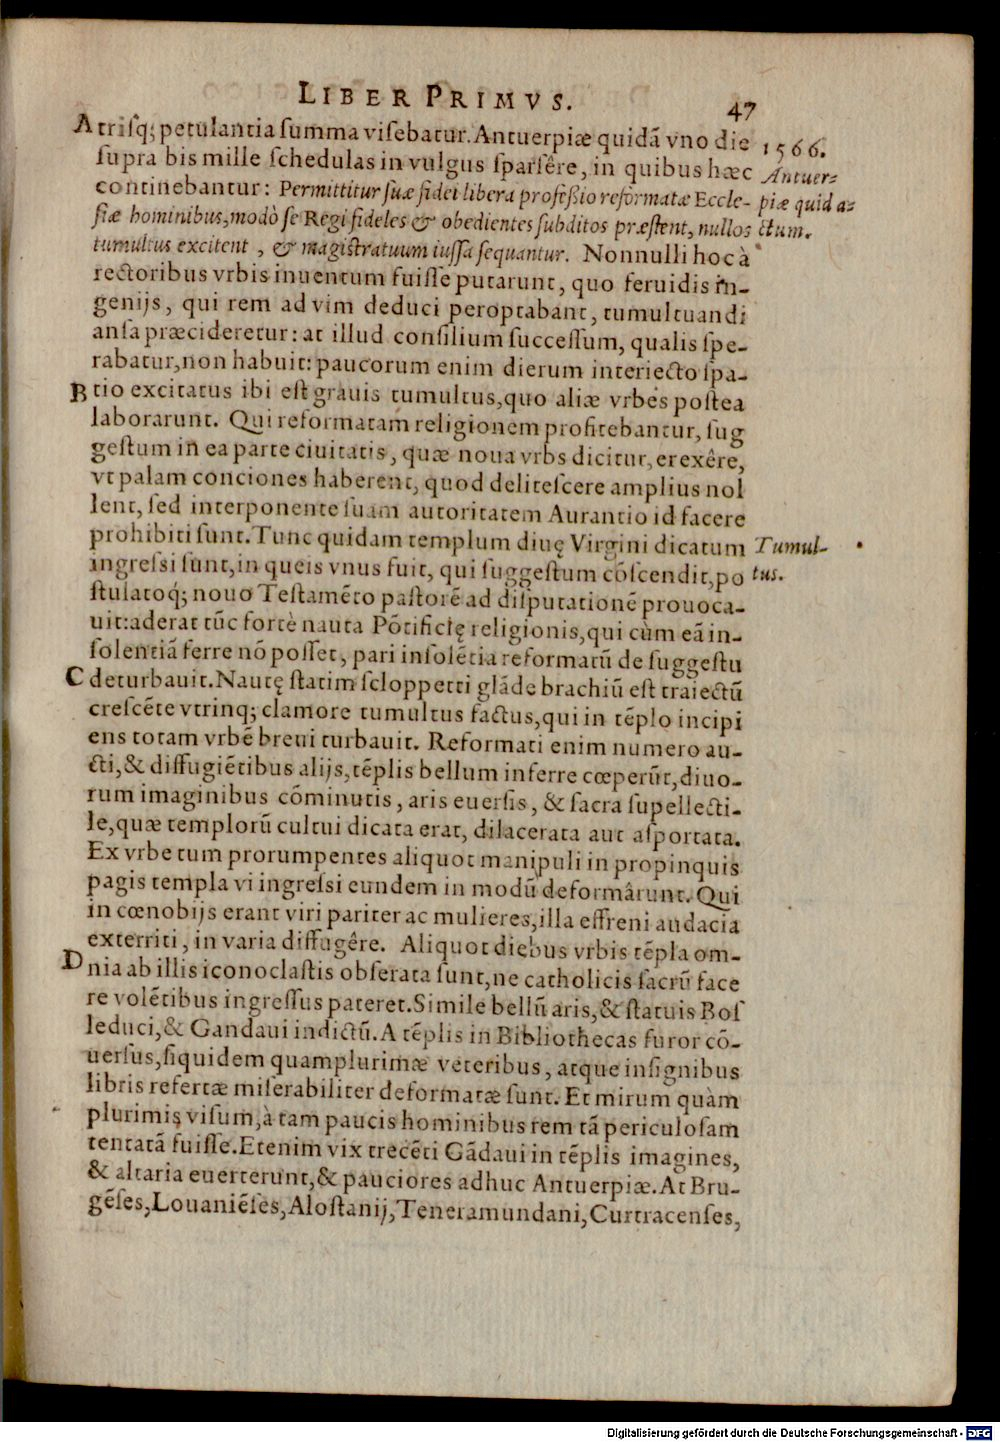 LIBER PRIMVS. 47
A triſq; petulantia ſumma viſebatur. Antuerpiæ quidã vno die
1566.
ſupra bis mille ſchedulas in vulgus ſparſêre, in quibus hæc
Antuer-
continebantur: Permittitur ſuæ fidei libera profeſsio reformatæ Eccle-
piæ quid a-
ſiæ hominibus, modò ſe Regi fideles & obedientes ſubditos præſtent, nullos
ctum.
tumultus excitent, & magiſtratuum iuſſa ſequantur. Nonnulli hoc à
rectoribus vrbis inuentum fuiſſe putarunt, quo feruidis in-
genijs, qui rem ad vim deduci peroptabant, tumultuandi
anſa præcideretur: at illud conſilium ſucceſſum, qualis ſpe-
rabatur, non habuit: paucorum enim dierum interiecto ſpa-
B tio excitatus ibi eſt grauis tumultus, quo aliæ vrbes poſtea
laborarunt. Qui reformatam religionem profitebantur, ſug
geſtum in ea parte ciuitatis, quæ noua vrbs dicitur, erexêre,
vt palam conciones haberent, quod deliteſcere amplius nol
lent, ſed interponente ſuam autoritatem Aurantio id facere
prohibiti ſunt. Tunc quidam templum diuę Virgini dicatum
Tumul-
ingreſsi ſunt, in queis vnus fuit, qui ſuggeſtum cõſcendit, po
tus.
ſtulatoq; nouo Teſtamẽto paſtorẽ ad diſputationẽ prouoca-
uit: aderat tũc fortè nauta Põtificię religionis, qui cùm eã in-
ſolentiã ferre nõ poſſet, pari inſolẽtia reformatũ de ſuggeſtu
C deturbauit. Nautę ſtatim ſcloppetti glãde brachiũ eſt traiectũ
creſcẽte vtrinq; clamore tumultus factus, qui in tẽplo incipi
ens totam vrbẽ breui turbauit. Reformati enim numero au-
cti, & diffugiẽtibus alijs, tẽplis bellum inferre cœperũt, diuo-
rum imaginibus cõminutis, aris euerſis, & ſacra ſupellecti-
le, quæ templorũ cultui dicata erat, dilacerata aut aſportata.
Ex vrbe tum prorumpentes aliquot manipuli in propinquis
pagis templa vi ingreſsi eundem in modũ deformârunt. Qui
in cœnobijs erant viri pariter ac mulieres, illa effreni audacia
exterriti, in varia diffugêre. Aliquot diebus vrbis tẽpla om-
D nia ab illis iconoclaſtis obſerata ſunt, ne catholicis ſacrũ face
re volẽtibus ingreſſus pateret. Simile bellũ aris, & ſtatuis Boſ
leduci, & Gandaui indictũ. A tẽplis in Bibliothecas furor cõ-
uerſus, ſiquidem quamplurimæ veteribus, atque inſignibus
libris refertæ miſerabiliter deformatæ ſunt. Et mirum quàm
plurimis viſum, à tam paucis hominibus rem tã periculoſam
tentatã fuiſſe. Etenim vix trecẽti Gãdaui in tẽplis imagines,
& altaria euerterunt, & pauciores adhuc Antuerpiæ. At Bru-
gẽſes, Louaniẽſes, Aloſtanij, Teneramundani, Curtracenſes,
Digitalisierung gefördert durch die Deutsche Forschungsgemeinschaft - DFG